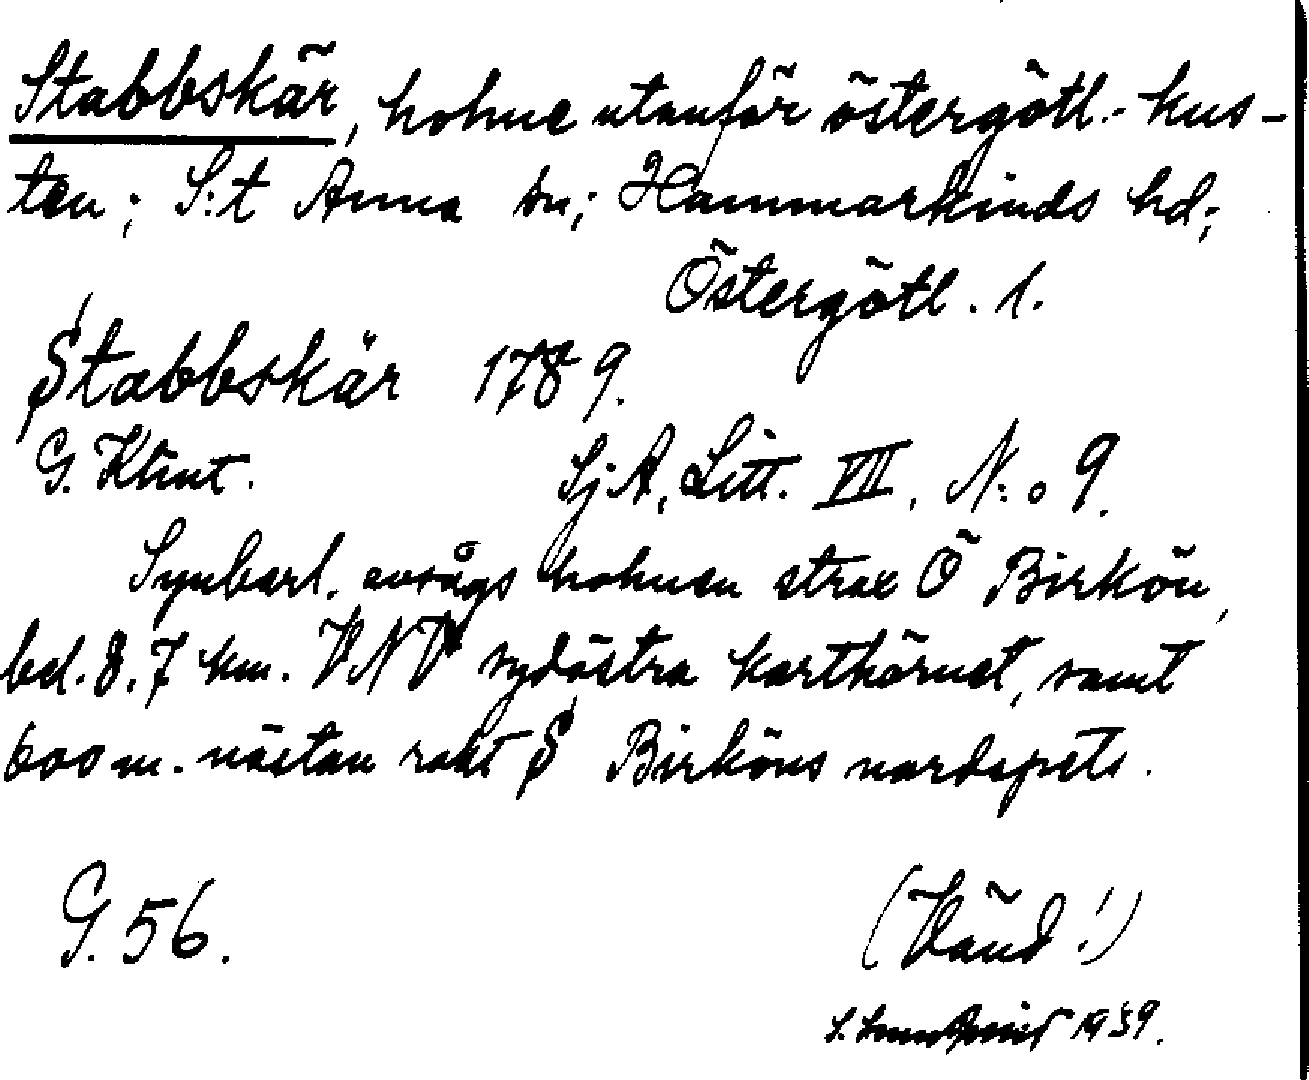 Stabbskär, holme utanför östergötl. kus-
ten; S:t Anna sn; Hammarkinds hd;
Östergötl. l.
Stabbskär 1789.
G. Klint. SjA, Litt. VII. N:o 9.
Synbarl. avsågs holmen strax Ö Birkön,
bel. 8.7 km. VNV sydöstra karthörnet, samt
600 m. nästan rakt S Birköns nordspets.
G. 56. (Vänd!)
1939.